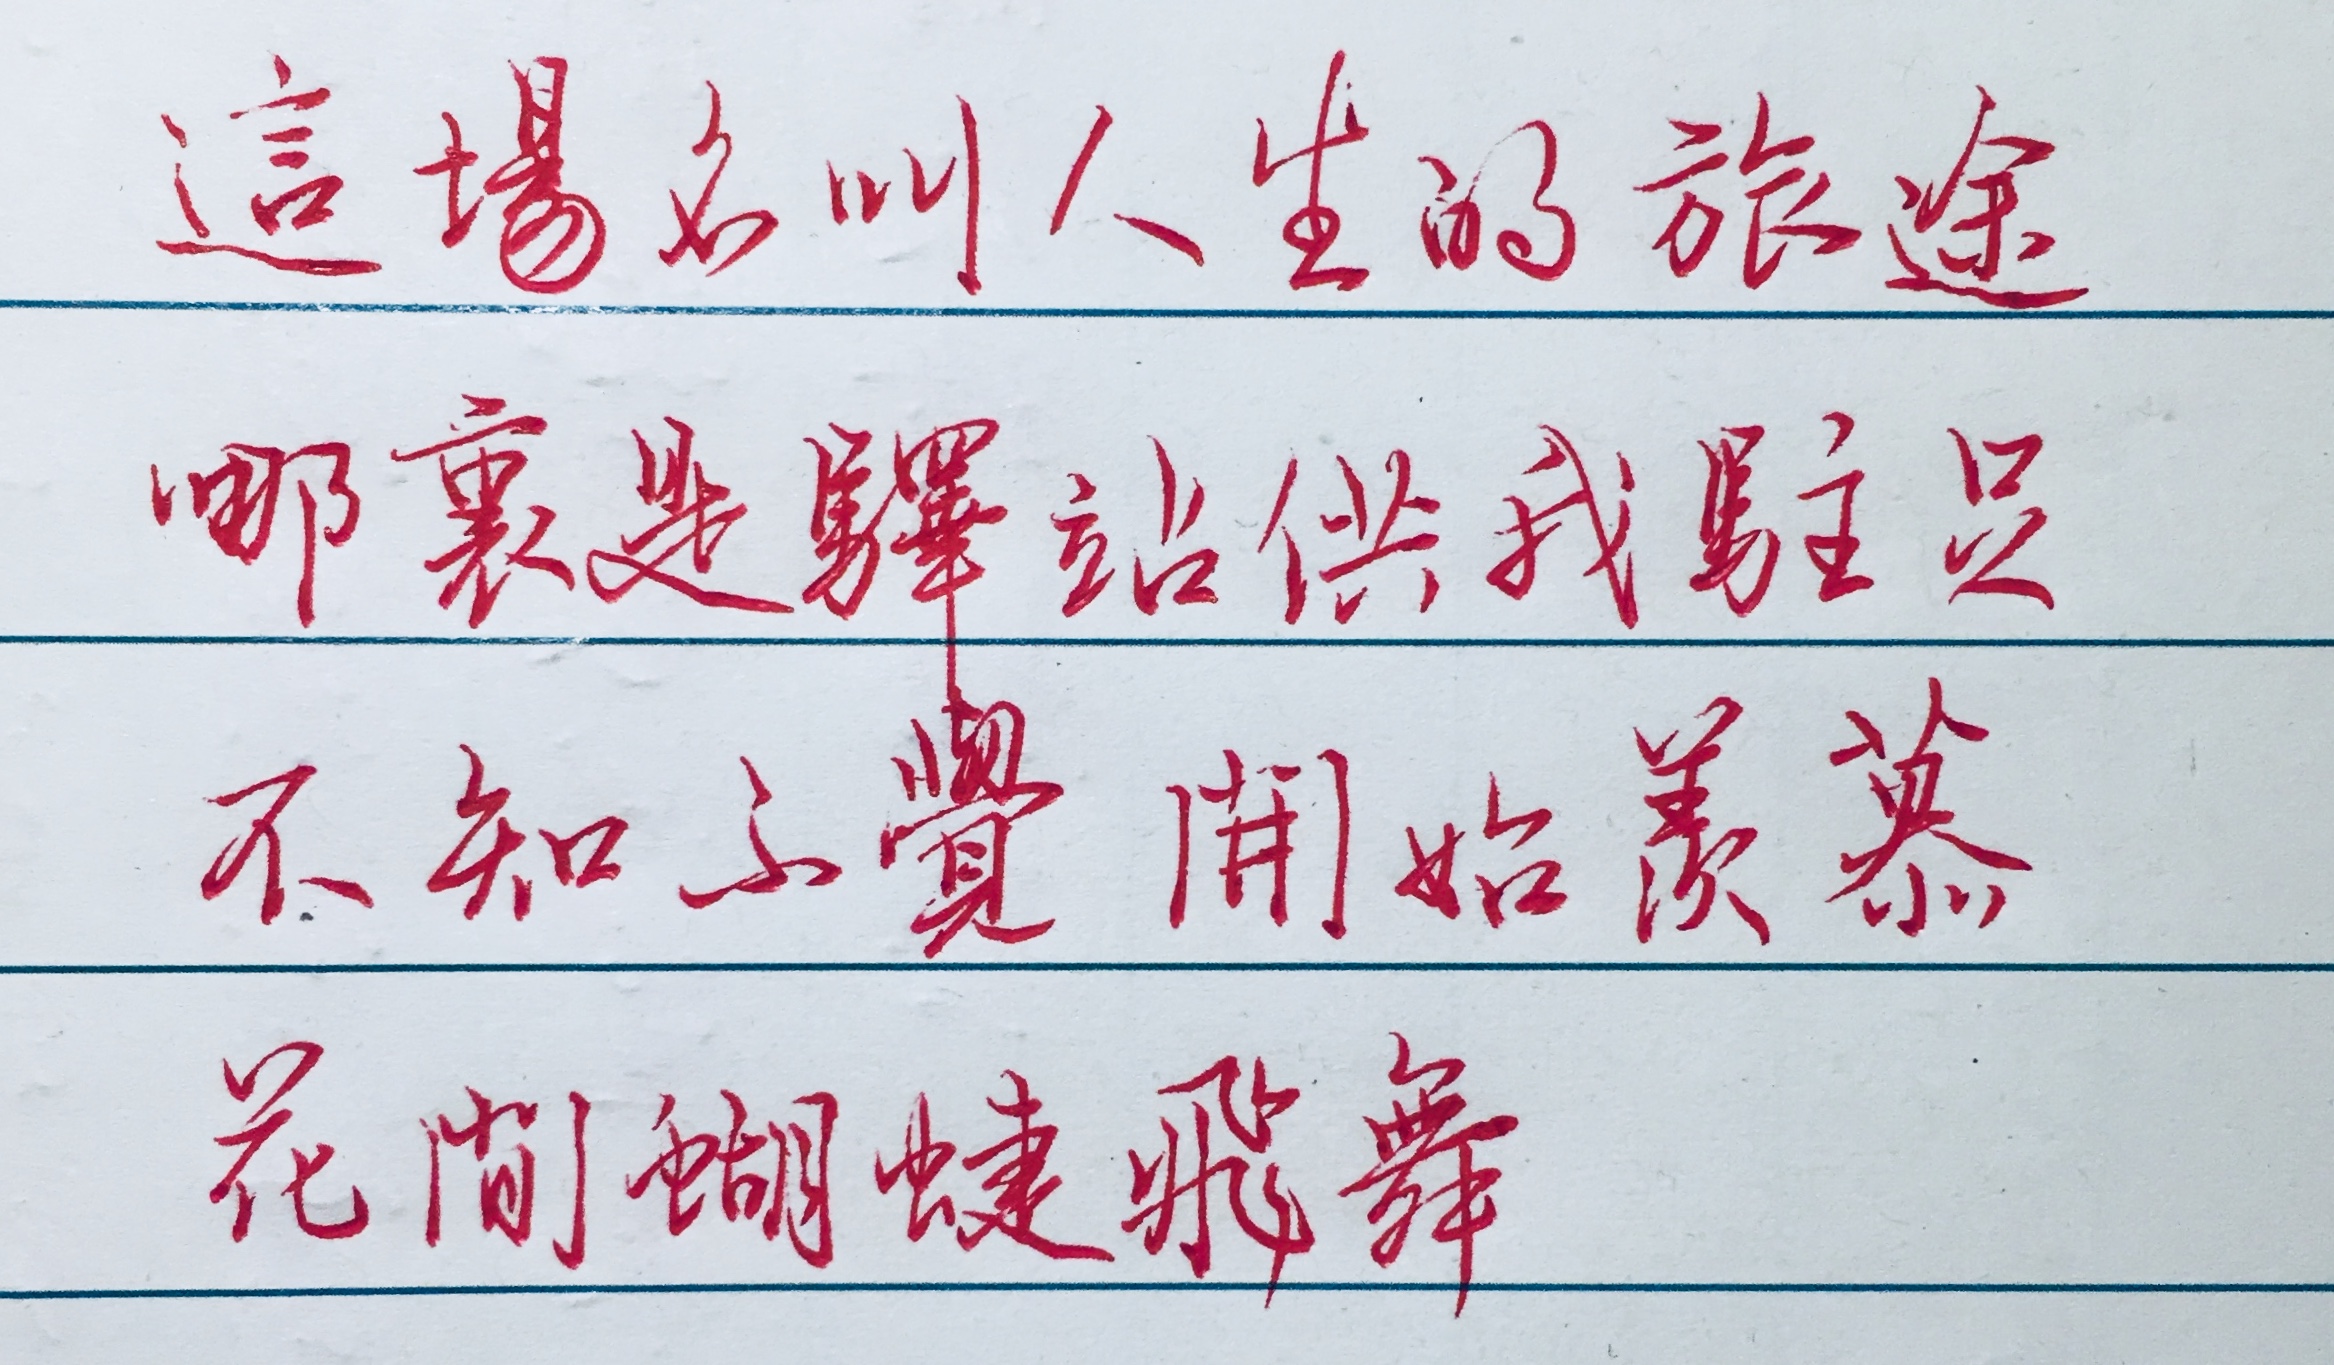 這場名叫人生的旅途
哪裏是驛站供我駐足
不知不覺開始羨慕
花間蝴蝶飛舞